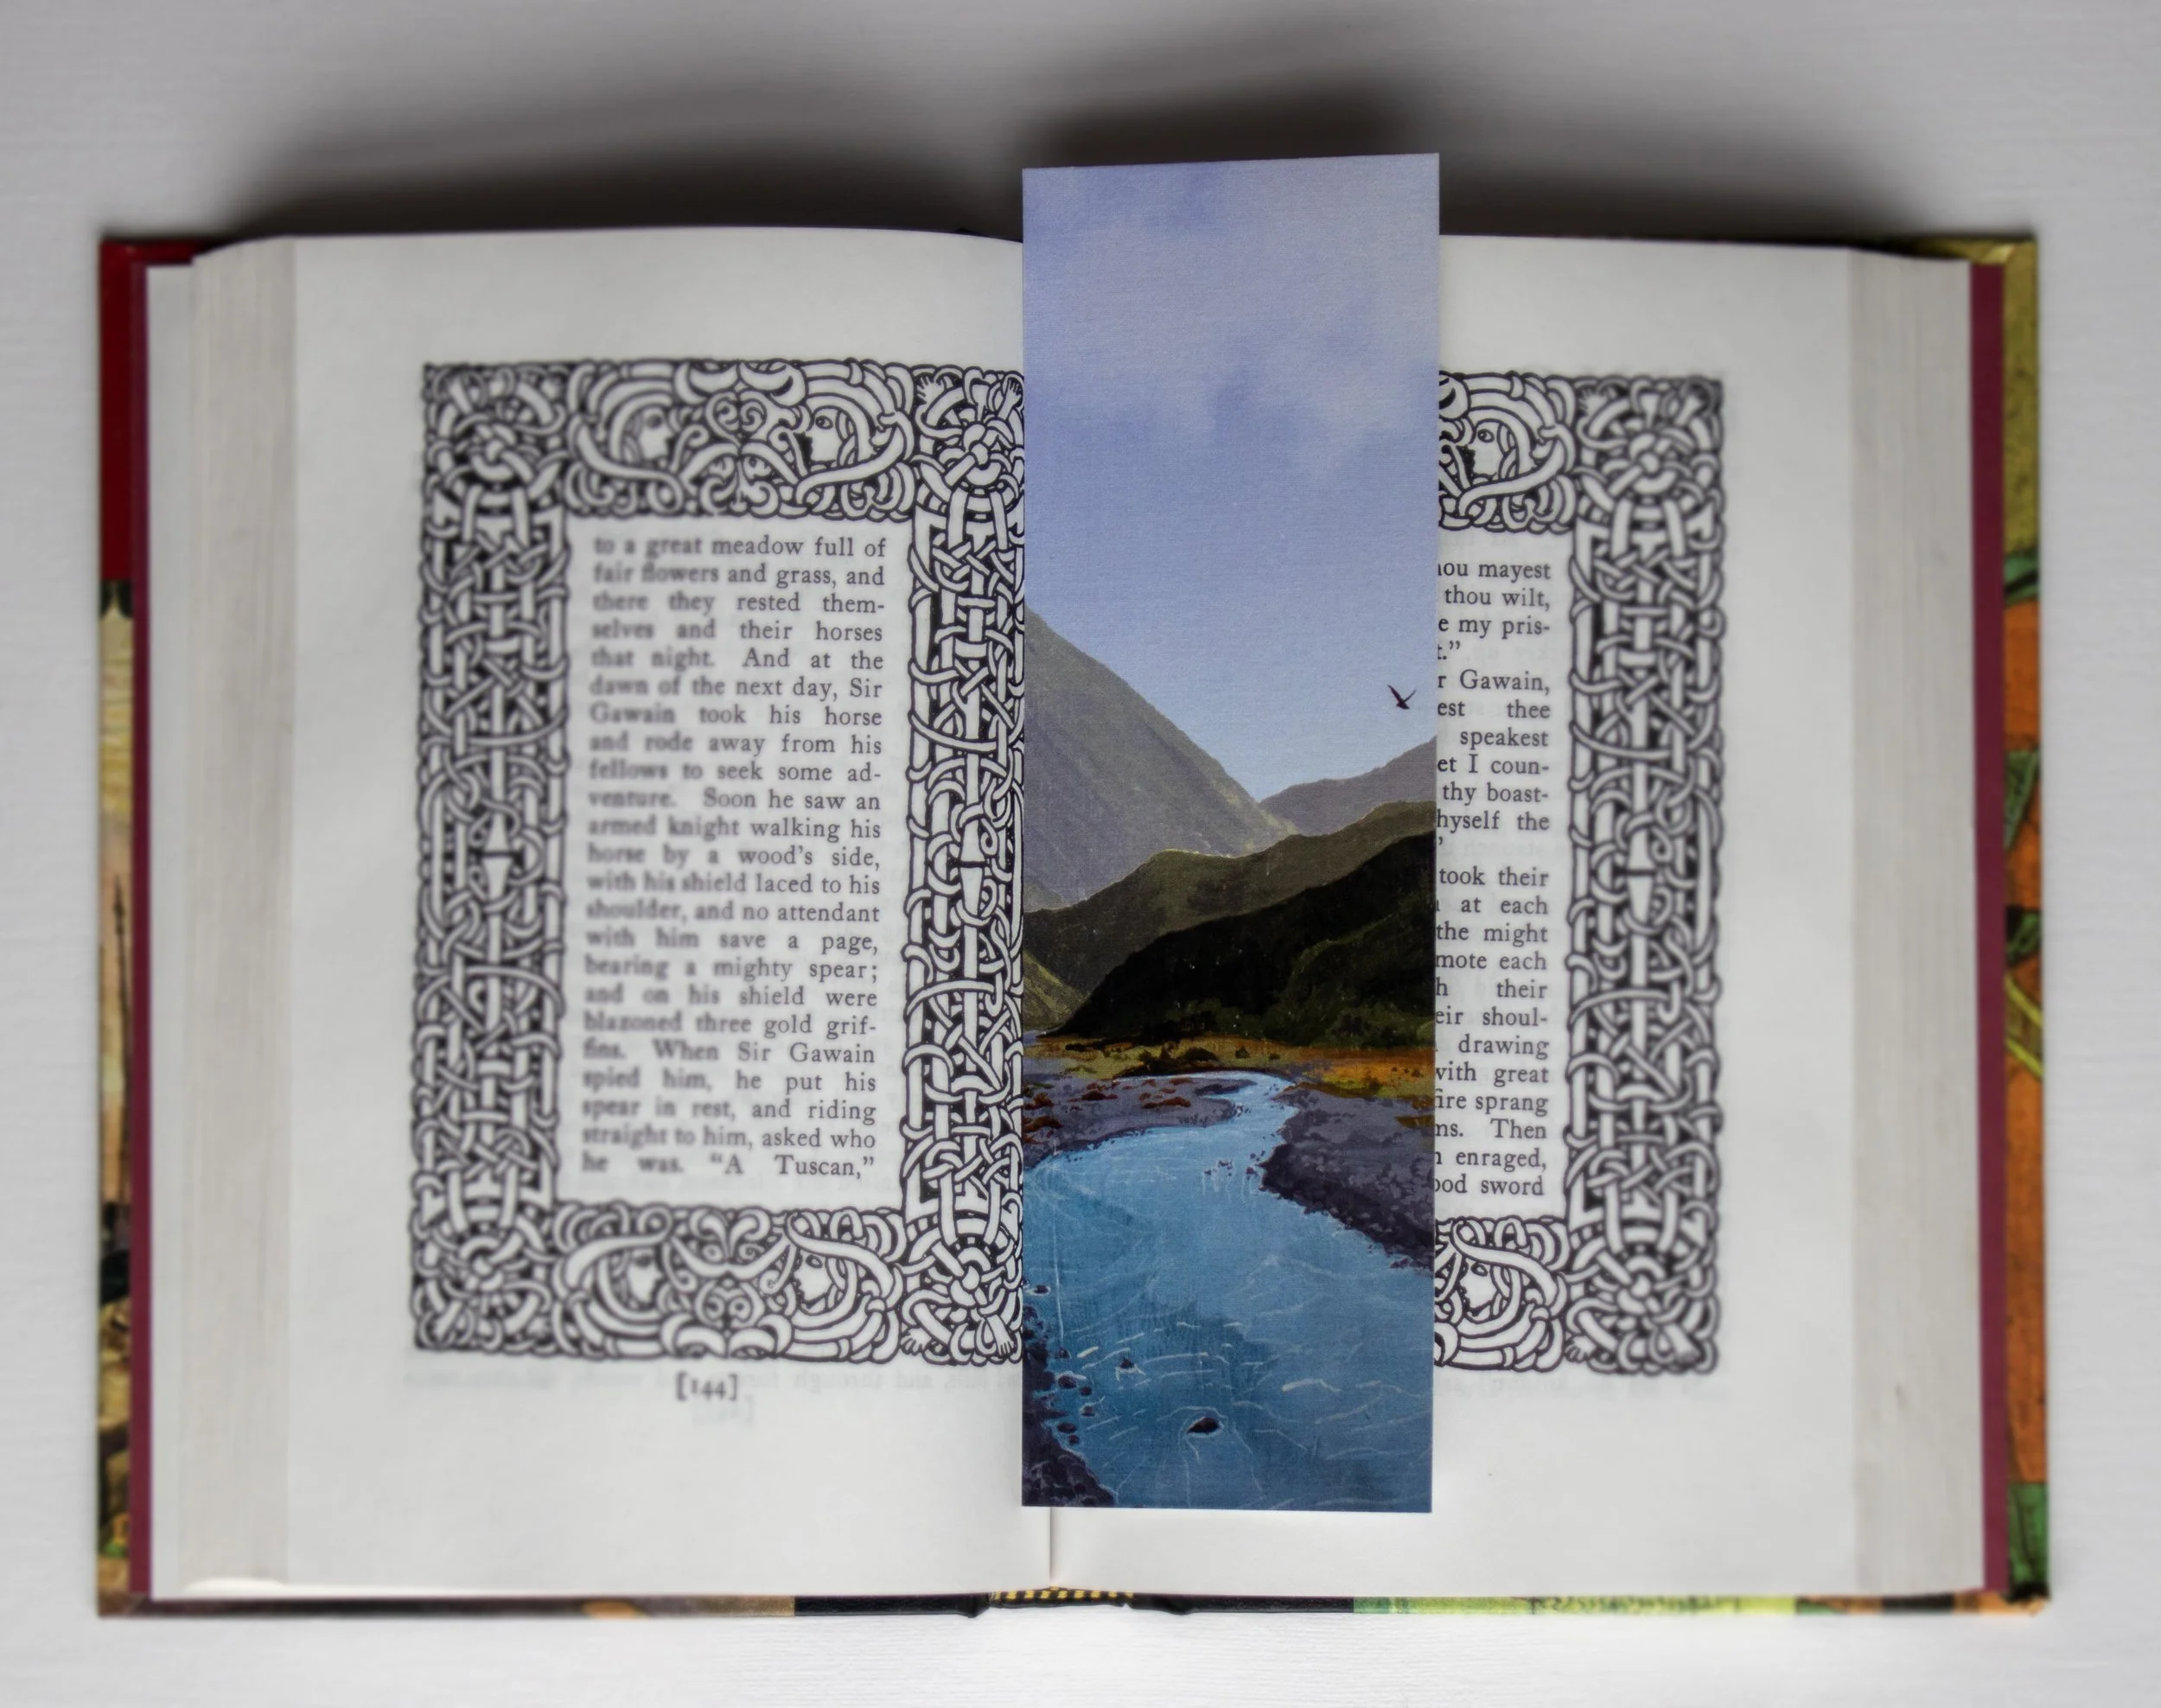 to a great meadow full of
fair flowers and grass, and
there they rested them-
selves and their horses
that night. And at the
dawn of the next day, Sir
Gawain took his horse
and rode away from his
fellows to seek some ad-
venture. Soon he saw an
armed knight walking his
horse by a wood's side,
with his shield laced to his
shoulder, and no attendant
with him save a page,
bearing a mighty spear;
and on his shield were
blazoned three gold grif-
fins. When Sir Gawain
spied him, he put his
spear in rest, and riding
straight to him, asked who
he was. “A Tuscan,”
[144]
mayest
thou wilt,
my pris-
Gawain,
thee
speakest
I coun-
thy boast-
the
took their
at each
the might
each
their
shoul-
drawing
with great
fire sprang
Then
enraged,
sword